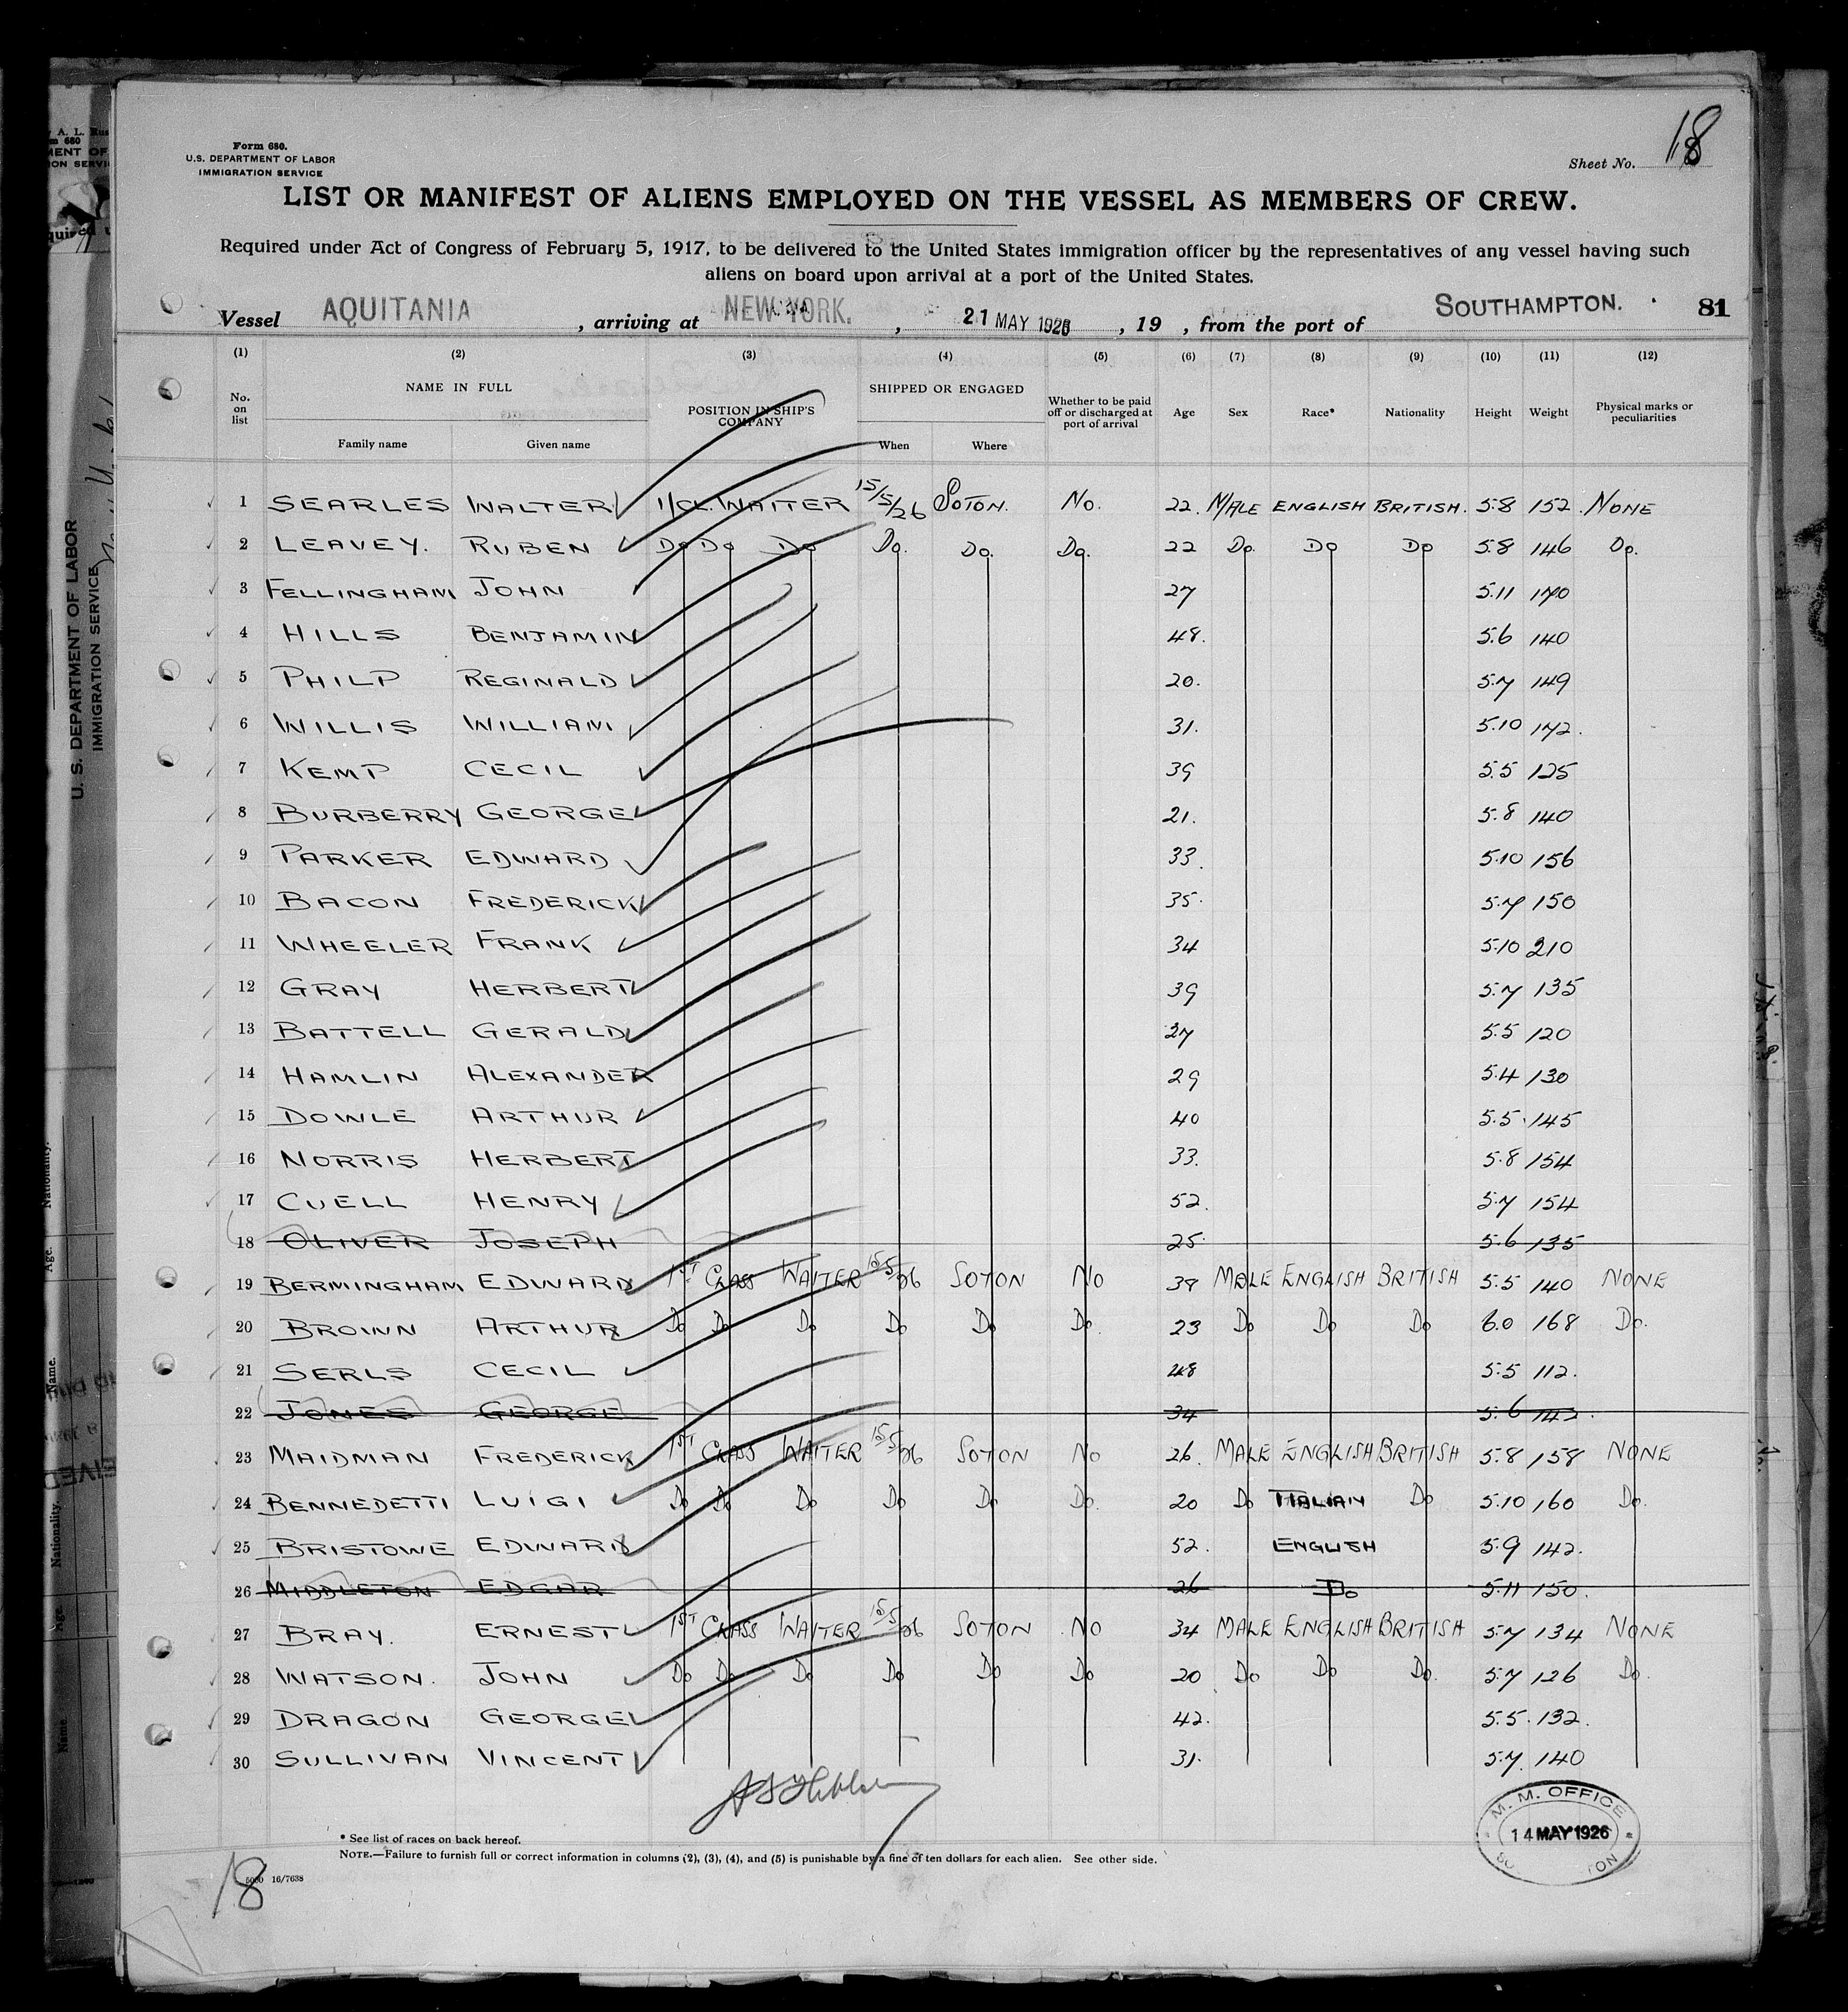 Form 680.
U.S. DEPARTMENT OF LABOR
IMMIGRATION SERVICE
Sheet No. 18
LIST OR MANIFEST OF ALIENS EMPLOYED ON THE VESSEL AS MEMBERS OF CREW.
Required under Act of Congress of February 5, 1917, to be delivered to the United States immigration officer by the representatives of any vessel having such
aliens on board upon arrival at a port of the United States.
Vessel AQUITANIA, arriving at NEW YORK., 21 MAY 1926, 19 , from the port of SOUTHAMPTON. 81
(1) (2) (3) (4) (5) (6) (7) (8) (9) (10) (11) (12)
No. on list NAME IN FULL Family name Given name POSITION IN SHIP'S COMPANY SHIPPED OR ENGAGED When Where Whether to be paid off or discharged at port of arrival Age Sex Race* Nationality Height Weight Physical marks or peculiarities
1 SEARLES WALTER 1/CL. WAITER 15/5/26 SOTON. No. 22. MALE ENGLISH BRITISH. 5.8 152. NONE
2 LEAVEY. RUBEN Do Do Do Do. Do. Do. 22 Do. Do Do 5.8 146 Do.
3 FELLINGHAM JOHN 27 5.11 170
4 HILLS BENJAMIN 48. 5.6 140
5 PHILP REGINALD 20. 5.7 149
6 WILLIS WILLIAM 31. 5.10 172.
7 KEMP CECIL 39 5.5 125
8 BURBERRY GEORGE 21. 5.8 140
9 PARKER EDWARD 33. 5.10 156
10 BACON FREDERICK 35. 5.7 150
11 WHEELER FRANK 34 5.10 210
12 GRAY HERBERT 39 5.7 135
13 BATTELL GERALD 27 5.5 120
14 HAMLIN ALEXANDER 29 5.4 130
15 DOWLE ARTHUR 40 5.5 145
16 NORRIS HERBERT 33. 5.8 154
17 CUELL HENRY 52. 5.7 154
18 OLIVER JOSEPH 25. 5.6 135
19 BERMINGHAM EDWARD 1ST CLASS WAITER 15/5/26 SOTON NO 39 MALE ENGLISH BRITISH 5.5 140 NONE
20 BROWN ARTHUR Do Do Do Do Do Do. 23 Do Do Do 6.0 168 Do.
21 SERLS CECIL 48 5.5 112.
22 JONES GEORGE 34 5.6 142.
23 MAIDMAN FREDERICK 1ST CLASS WAITER 15/5/26 SOTON NO 26. MALE ENGLISH BRITISH 5.8 158 NONE
24 BENNEDETTI LUIGI Do Do Do Do Do Do. 20 Do ITALIAN Do 5.10 160 Do.
25 BRISTOWE EDWARD 52. ENGLISH 5.9 142.
26 MIDDLETON EDGAR 26 Do 5.11 150.
27 BRAY. ERNEST 1ST CLASS WAITER 15/5/26 SOTON NO 34 MALE ENGLISH BRITISH 5.7 134 NONE
28 WATSON. JOHN Do Do Do Do Do Do 20 Do Do Do. 5.7 126 Do.
29 DRAGON GEORGE 42. 5.5. 132.
30 SULLIVAN VINCENT 31. 5.7. 140
M. M. OFFICE
14 MAY 1926
* See list of races on back hereof.
NOTE.—Failure to furnish full or correct information in columns (2), (3), (4), and (5) is punishable by a fine of ten dollars for each alien. See other side.
18
5000 16/7638
U. S. DEPARTMENT OF LABOR
IMMIGRATION SERVICE
Nationality.
Age.
Name.
Nationality.
Age.
Name